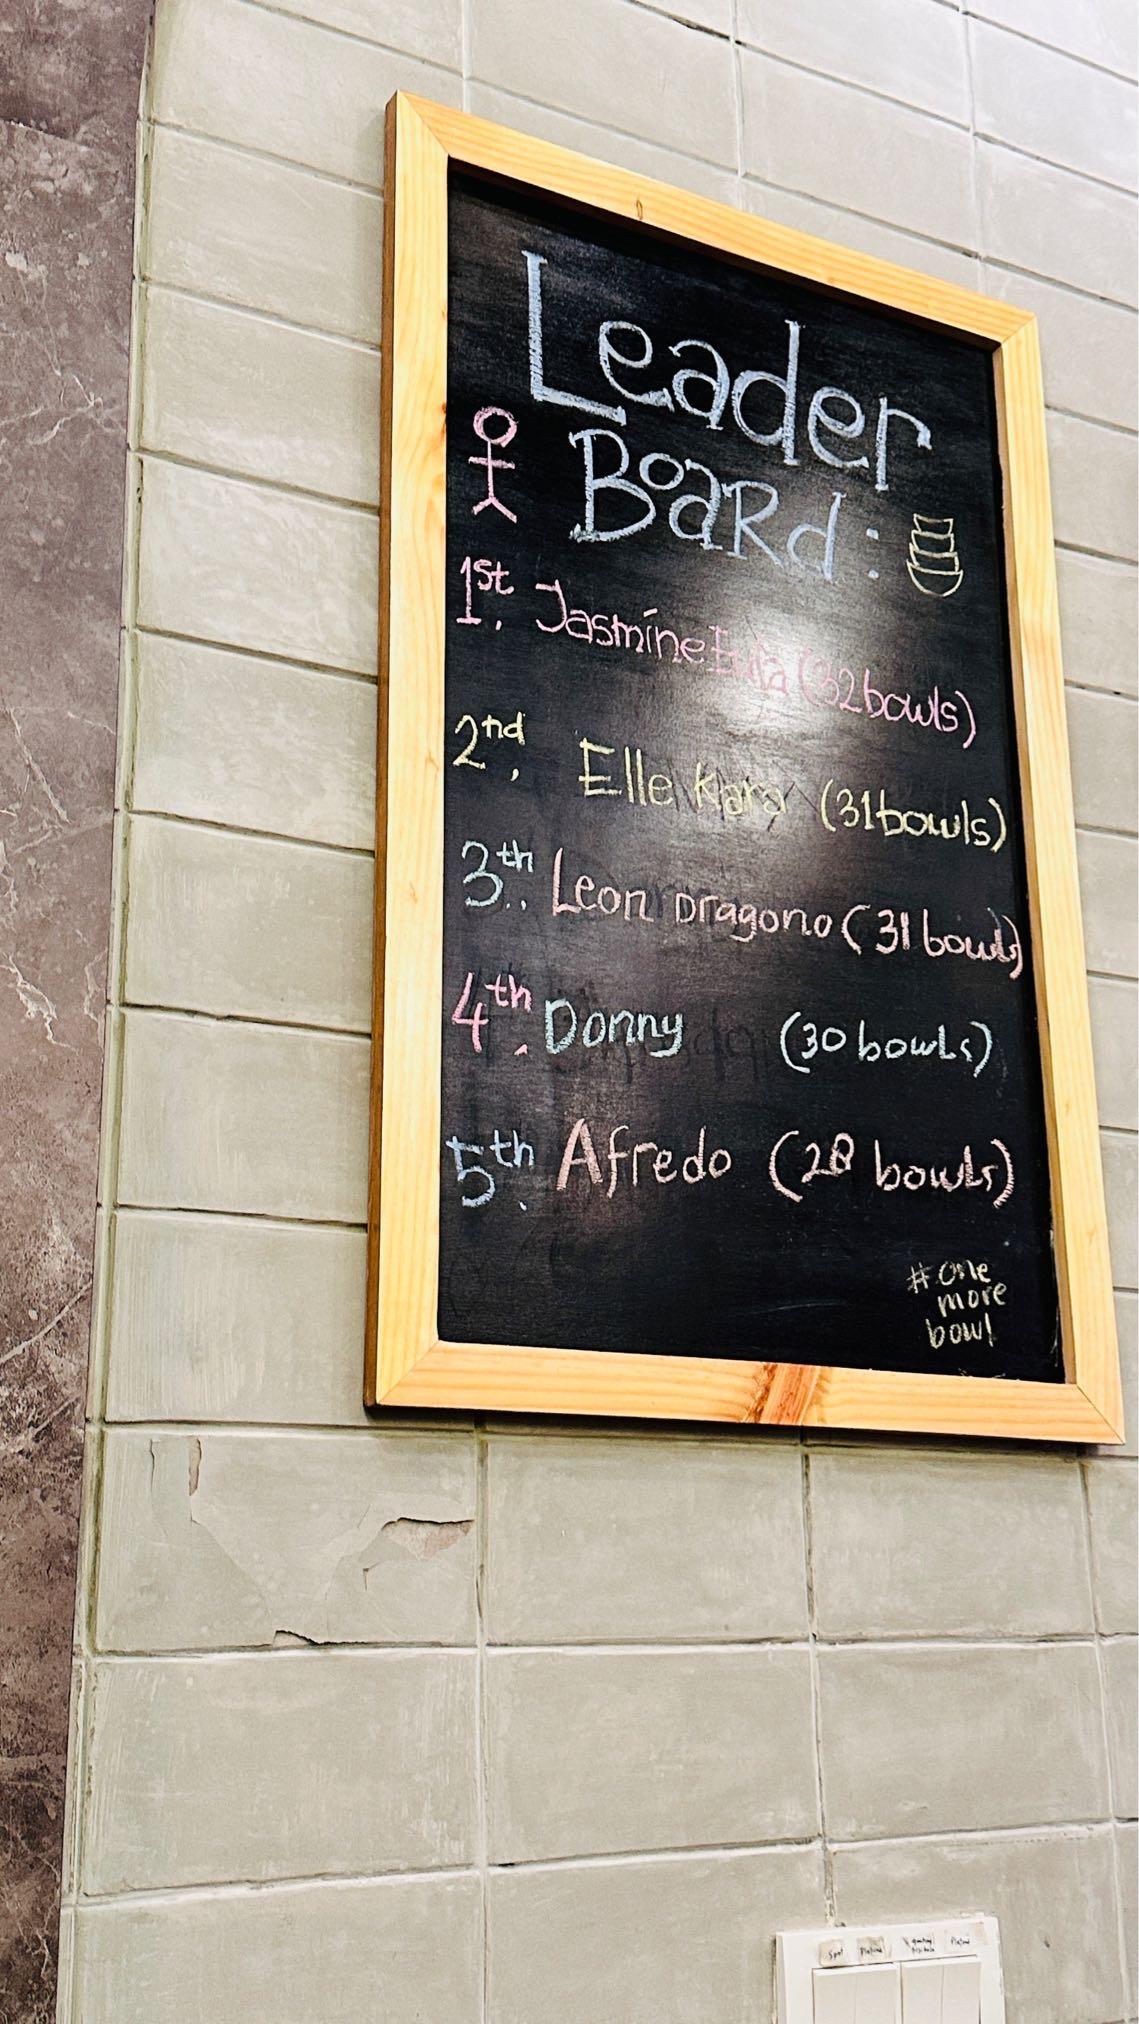 Leader
Board:
1st. Jasmine (32bowls)
2nd. Elle Kara (31bowls)
3th.. Leon Dragono (31 bowls)
4th. Donny (30 bowls)
5th. Afredo (28 bowls)
#one
more
bowl
Spot